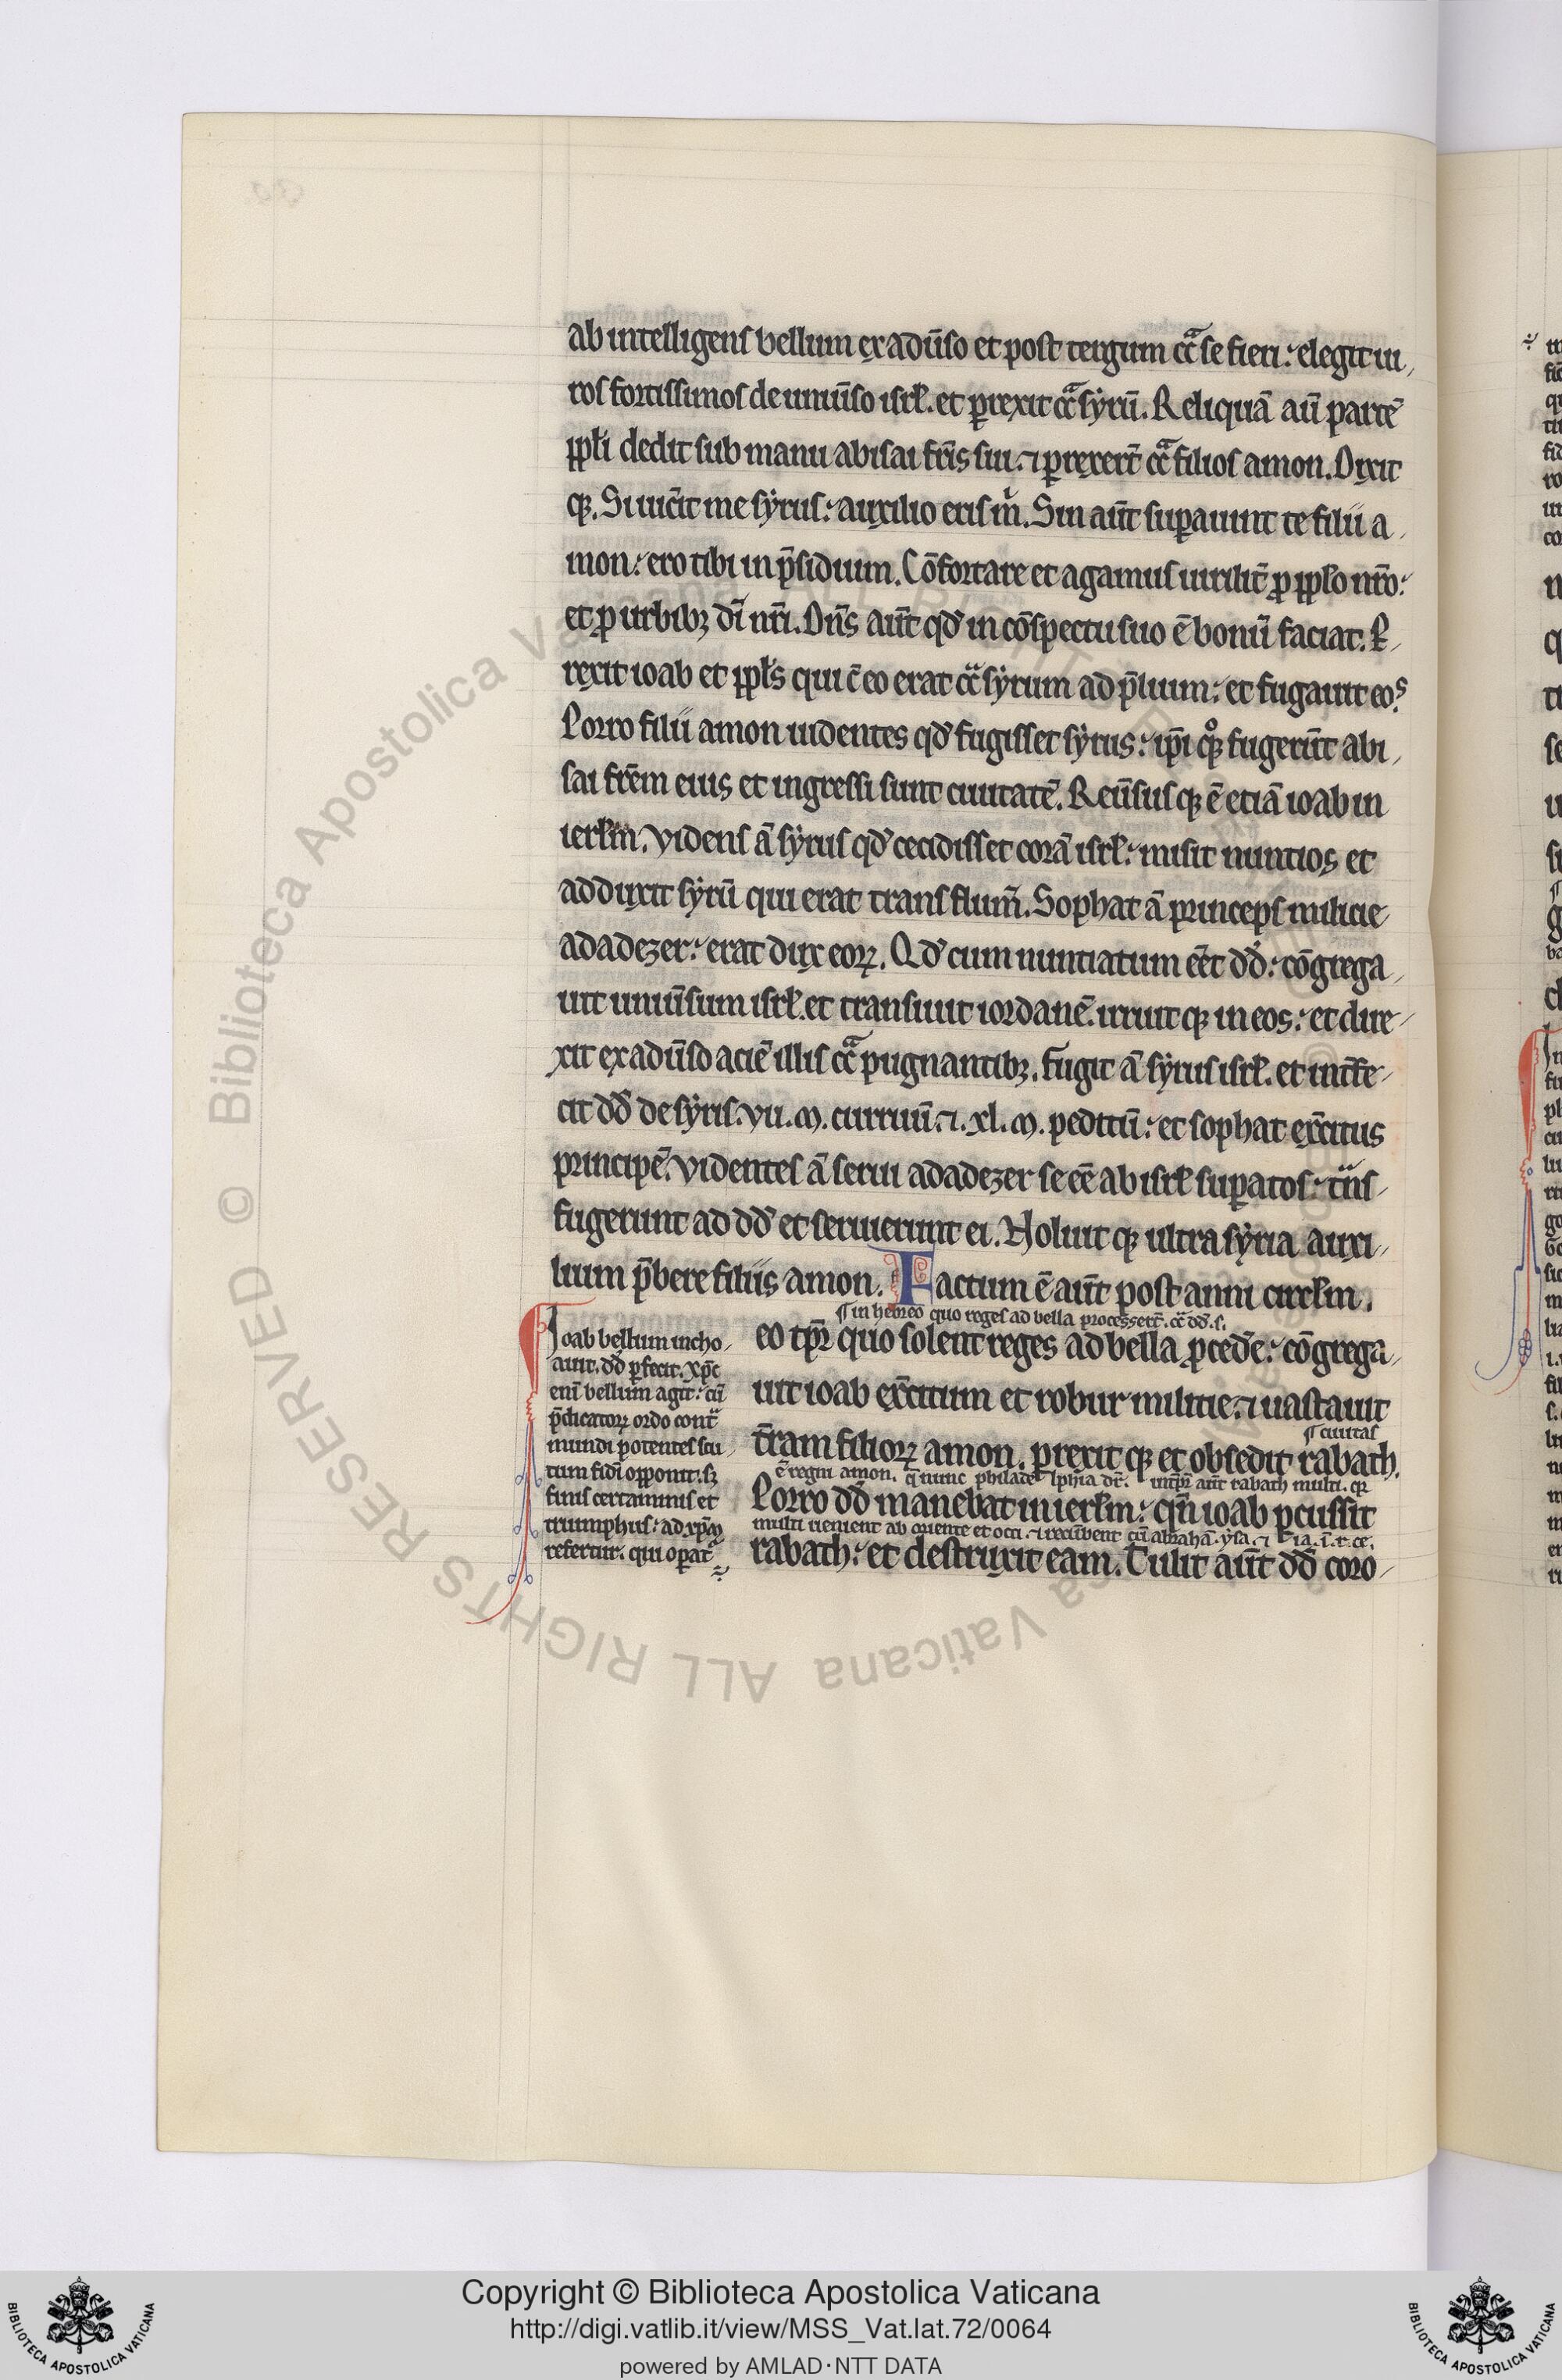 ab intelligens bellum ex adũso et post tergum cͣ̄ se fieri: elegit ui
ros fortissimos de uniũso isrł. et ꝑrexit cͣ̄ syrũ. Reliquã aũ partẽ
ppłi dedit sub manu abisai fr̃is sui. ⁊ ꝑrexer̃t cͣ̄ filios amon. Dixit
qꝫ. Si uic̃it me syrus: auxilio eris m̊. Sin aũt suꝑauint te filii a
mon: ero tibi in p̃sidium. Cõfortare et agamus uirilit̃ ꝓ ppło nr̃o:
et ꝓ urbibꝫ dĩ nr̃i. Dñs aũt qď in cõspectu suo ẽ bonũ faciat. P̲
rexit ioab et ppłs qui c̃ eo erat cͣ̄ syrum ad p̃lium: et fugauit eos
Porro filii amon uidentes qď fugisset syrus: ip̃i qͦꝫ fugerũt abi
sai fr̃em eius et ingressi sunt ciuitatẽ. Reũsus qꝫ ẽ etiã ioab in
ierłm. Videns ã syrus qď cecidisset corã isrł: misit nuntios et
adduxit syrũ qui erat trans flum̃. Sophat ã princeps milicie
adadezer: erat dux eoꝝ. Qď cum nuntiatum eẽt dď: cõgrega
uit uniũsum isrł. et transiuit iordanẽ. irruit qꝫ in eos: et dire
xit ex adũso aciẽ illis cͣ̄ pugnantibꝫ. Fugit ã syrus isrł. et int̃fe
cit dď de syris. vii. m. curruũ. ⁊. xl. m. peditũ: et sophat ex̃citus
principẽ. Videntes ã serui adadezer se eẽ ab isrł suꝑatos: tͣ̄ns
fugerunt ad dď et seruierunt ei. Noluit qꝫ ultra syria auxi
lium p̃bere filiis amon. Factum ẽ aũt post anni circłm.
¶ in hebreo quo reges ad bella processer̃t. cͣ̄ dď. s.
eo tp̃r quo solent reges ad bella ꝓceďe: cõgrega
uit ioab ex̃citum et robur militie. ⁊ uastauit
¶ ciuitas
t̃ram filioꝝ amon. ꝑrexit qꝫ et obsedit rabath.
ẽ regni amon. q̃ nunc philade lphia dr̃. int̃p̃r aũt rabath multi. qꝫ
Porro dď manebat in ierłm: qñ ioab ꝑcussit
multi uenient ab oriente et occi. ⁊ recũbent cũ abrahã. ysa. ⁊ ia. ĩ. r. ce.
rabath: et destruxit eam. Tulit aũt dď coro
Ioab bellum incho
auit. dď ꝑfecit. xp̃c
enĩ bellum agit: cũ
p̃dicatoꝝ ordo contͣ
mundi potentes scu
tum fidĩ opponit. sꝫ
finis certaminis et
triumphus: ad xp̃m
refertur. qui oꝑatͬ
Copyright © Biblioteca Apostolica Vaticana
http://digi.vatlib.it/view/MSS_Vat.lat.72/0064
powered by AMLAD·NTT DATA
BIBLIOTECA APOSTOLICA VATICANA
BIBLIOTECA APOSTOLICA VATICANA
© Biblioteca Apostolica Vaticana ALL RIGHTS RESERVED